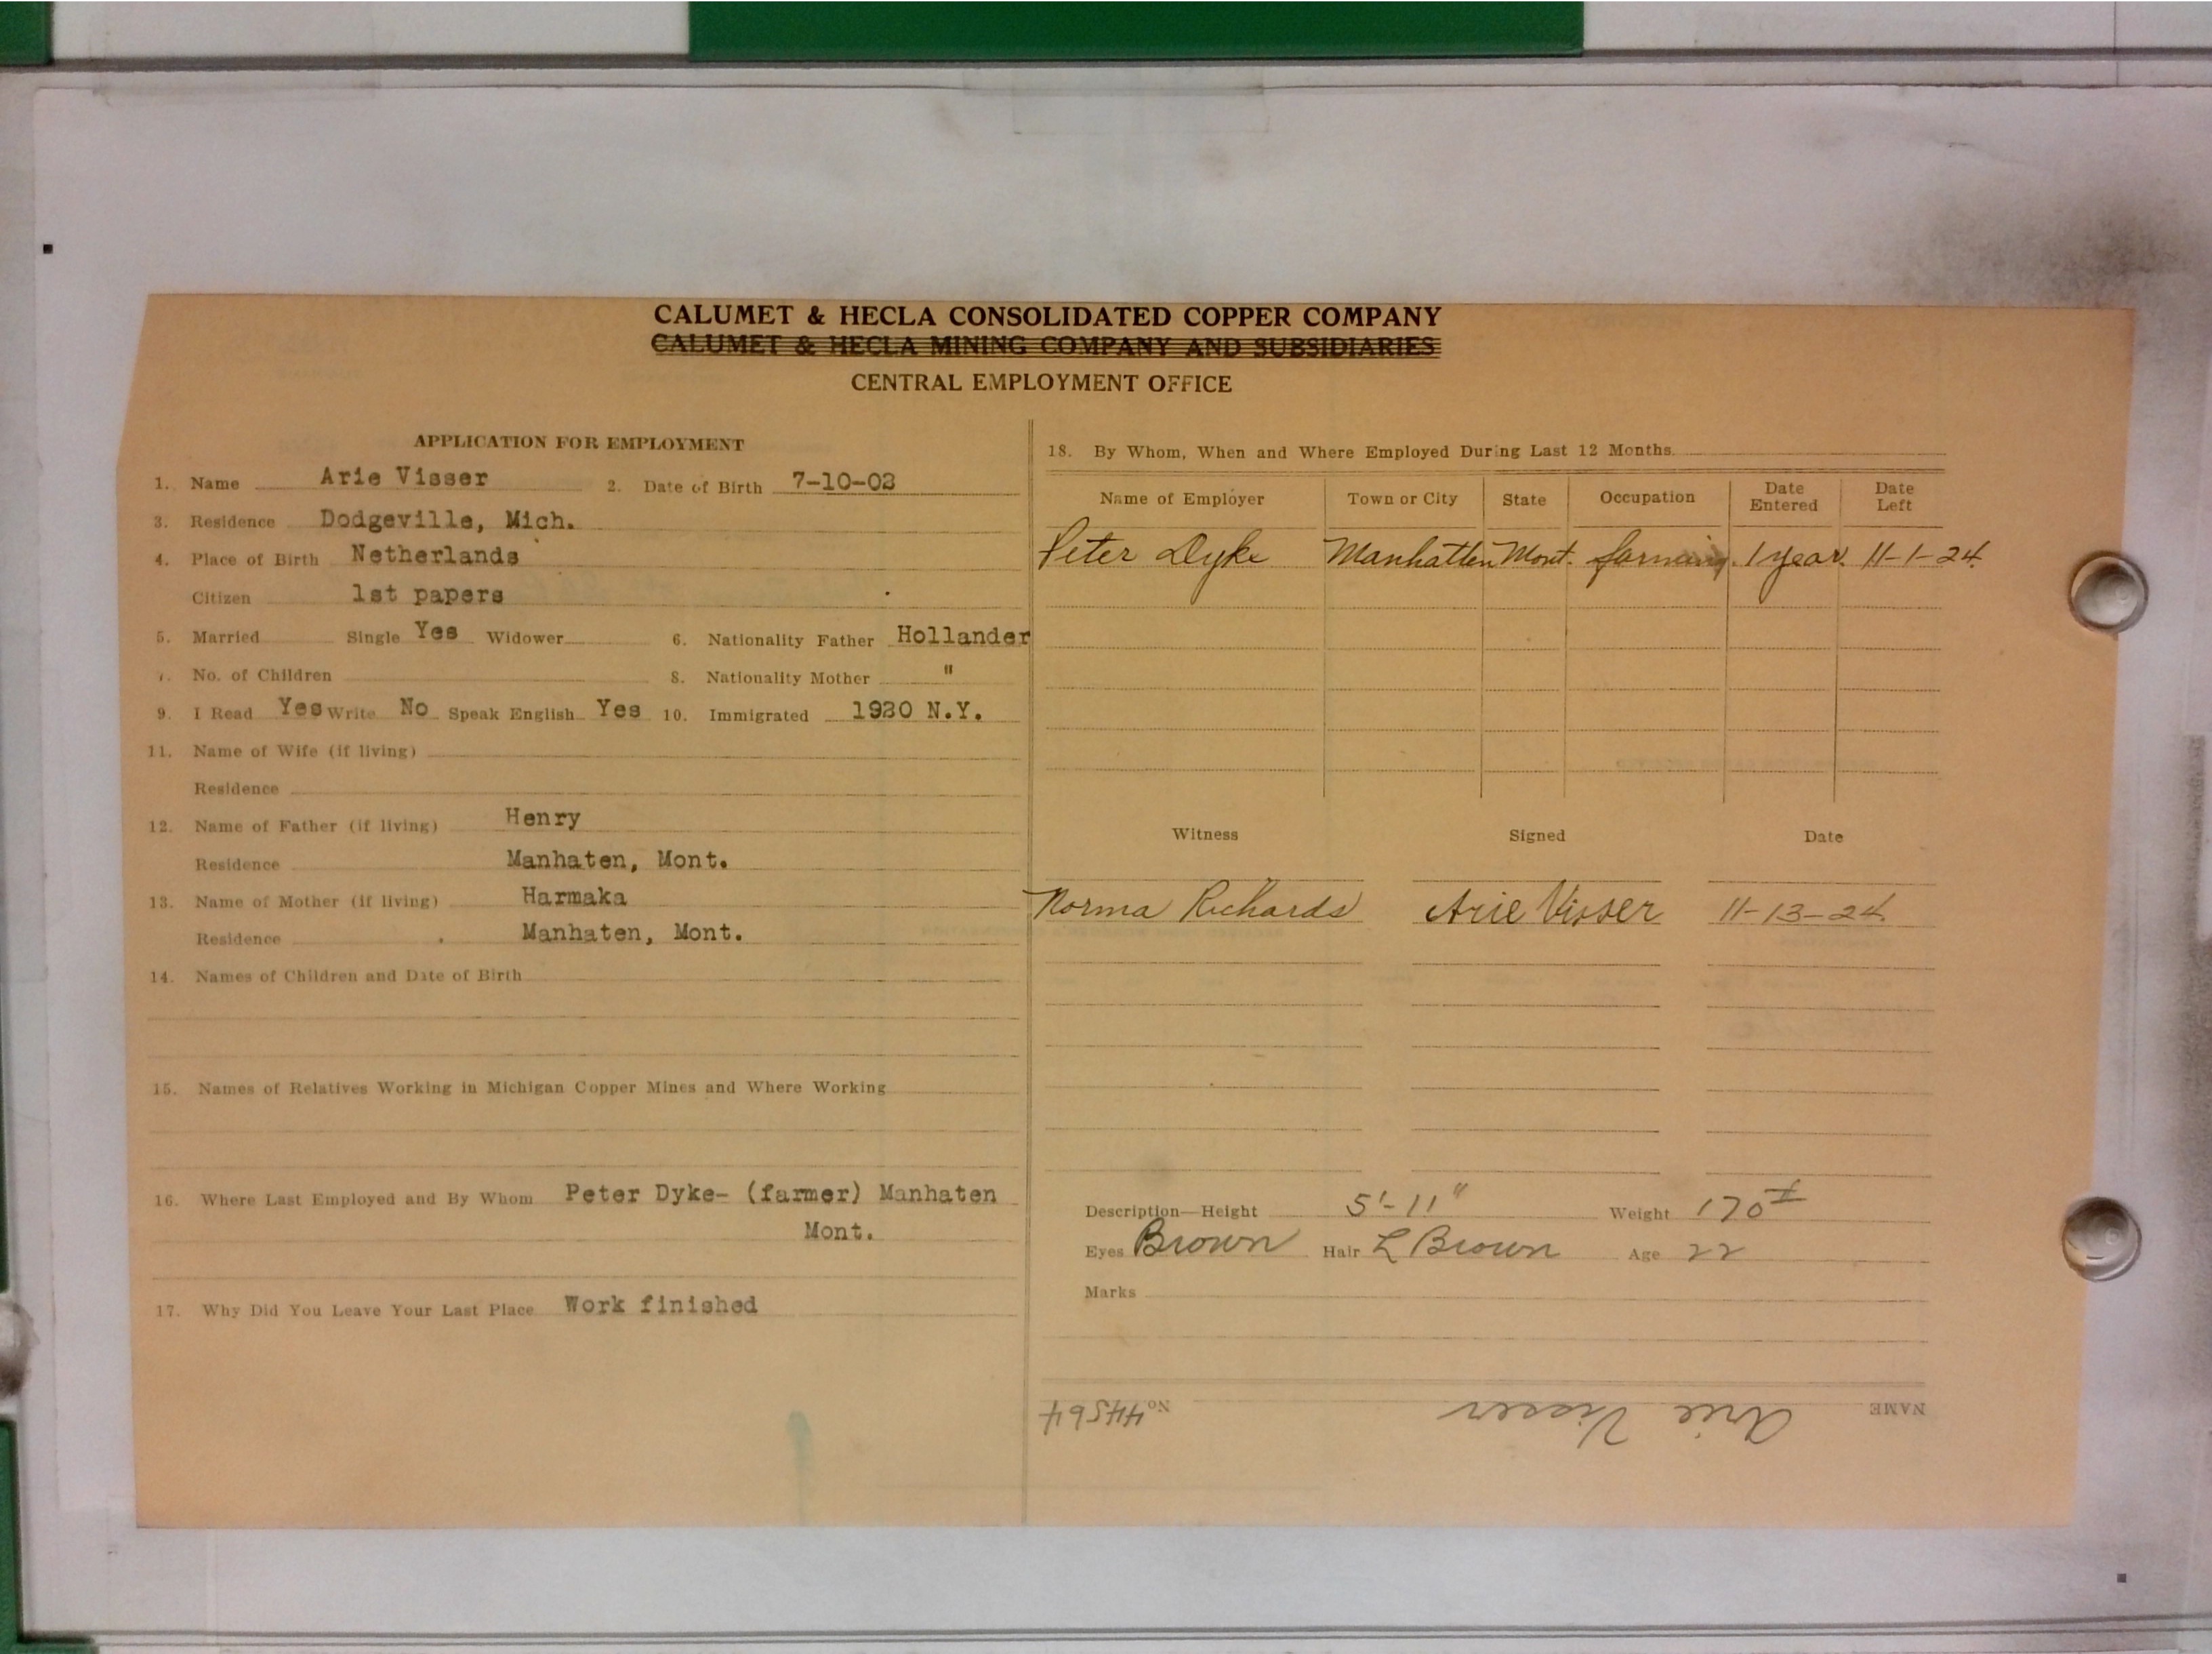 CALUMET & HECLA CONSOLIDATED COPPER COMPANY
CALUMET & HECLA MINING COMPANY AND SUBSIDIARIES
CENTRAL EMPLOYMENT OFFICE
APPLICATION FOR EMPLOYMENT
1. Name Arie Visser 2. Date of Birth 7-10-02
3. Residence Dodgeville, Mich.
4. Place of Birth Netherlands
Citizen 1st papers
5. Married Single Yes Widower 6. Nationality Father Hollander
7. No. of Children 8. Nationality Mother "
9. I Read Yes Write No Speak English Yes 10. Immigrated 1920 N.Y.
11. Name of Wife (if living)
Residence
12. Name of Father (if living) Henry
Residence Manhaten, Mont.
13. Name of Mother (if living) Harmaka
Residence Manhaten, Mont.
14. Names of Children and Date of Birth
15. Names of Relatives Working in Michigan Copper Mines and Where Working
16. Where Last Employed and By Whom Peter Dyke- (farmer) Manhaten
Mont.
17. Why Did You Leave Your Last Place Work finished
18. By Whom, When and Where Employed During Last 12 Months.
Name of Employer Town or City State Occupation Date Entered Date Left
Peter Dyke Manhatten Mont. farming 1 year. 11-1-24.
Witness Signed Date
Norma Richards Arie Visser 11-13-24.
Description—Height 5'-11" Weight 170±
Eyes Brown Hair L Brown Age 22
Marks
NAME Arie Visser No. 44564